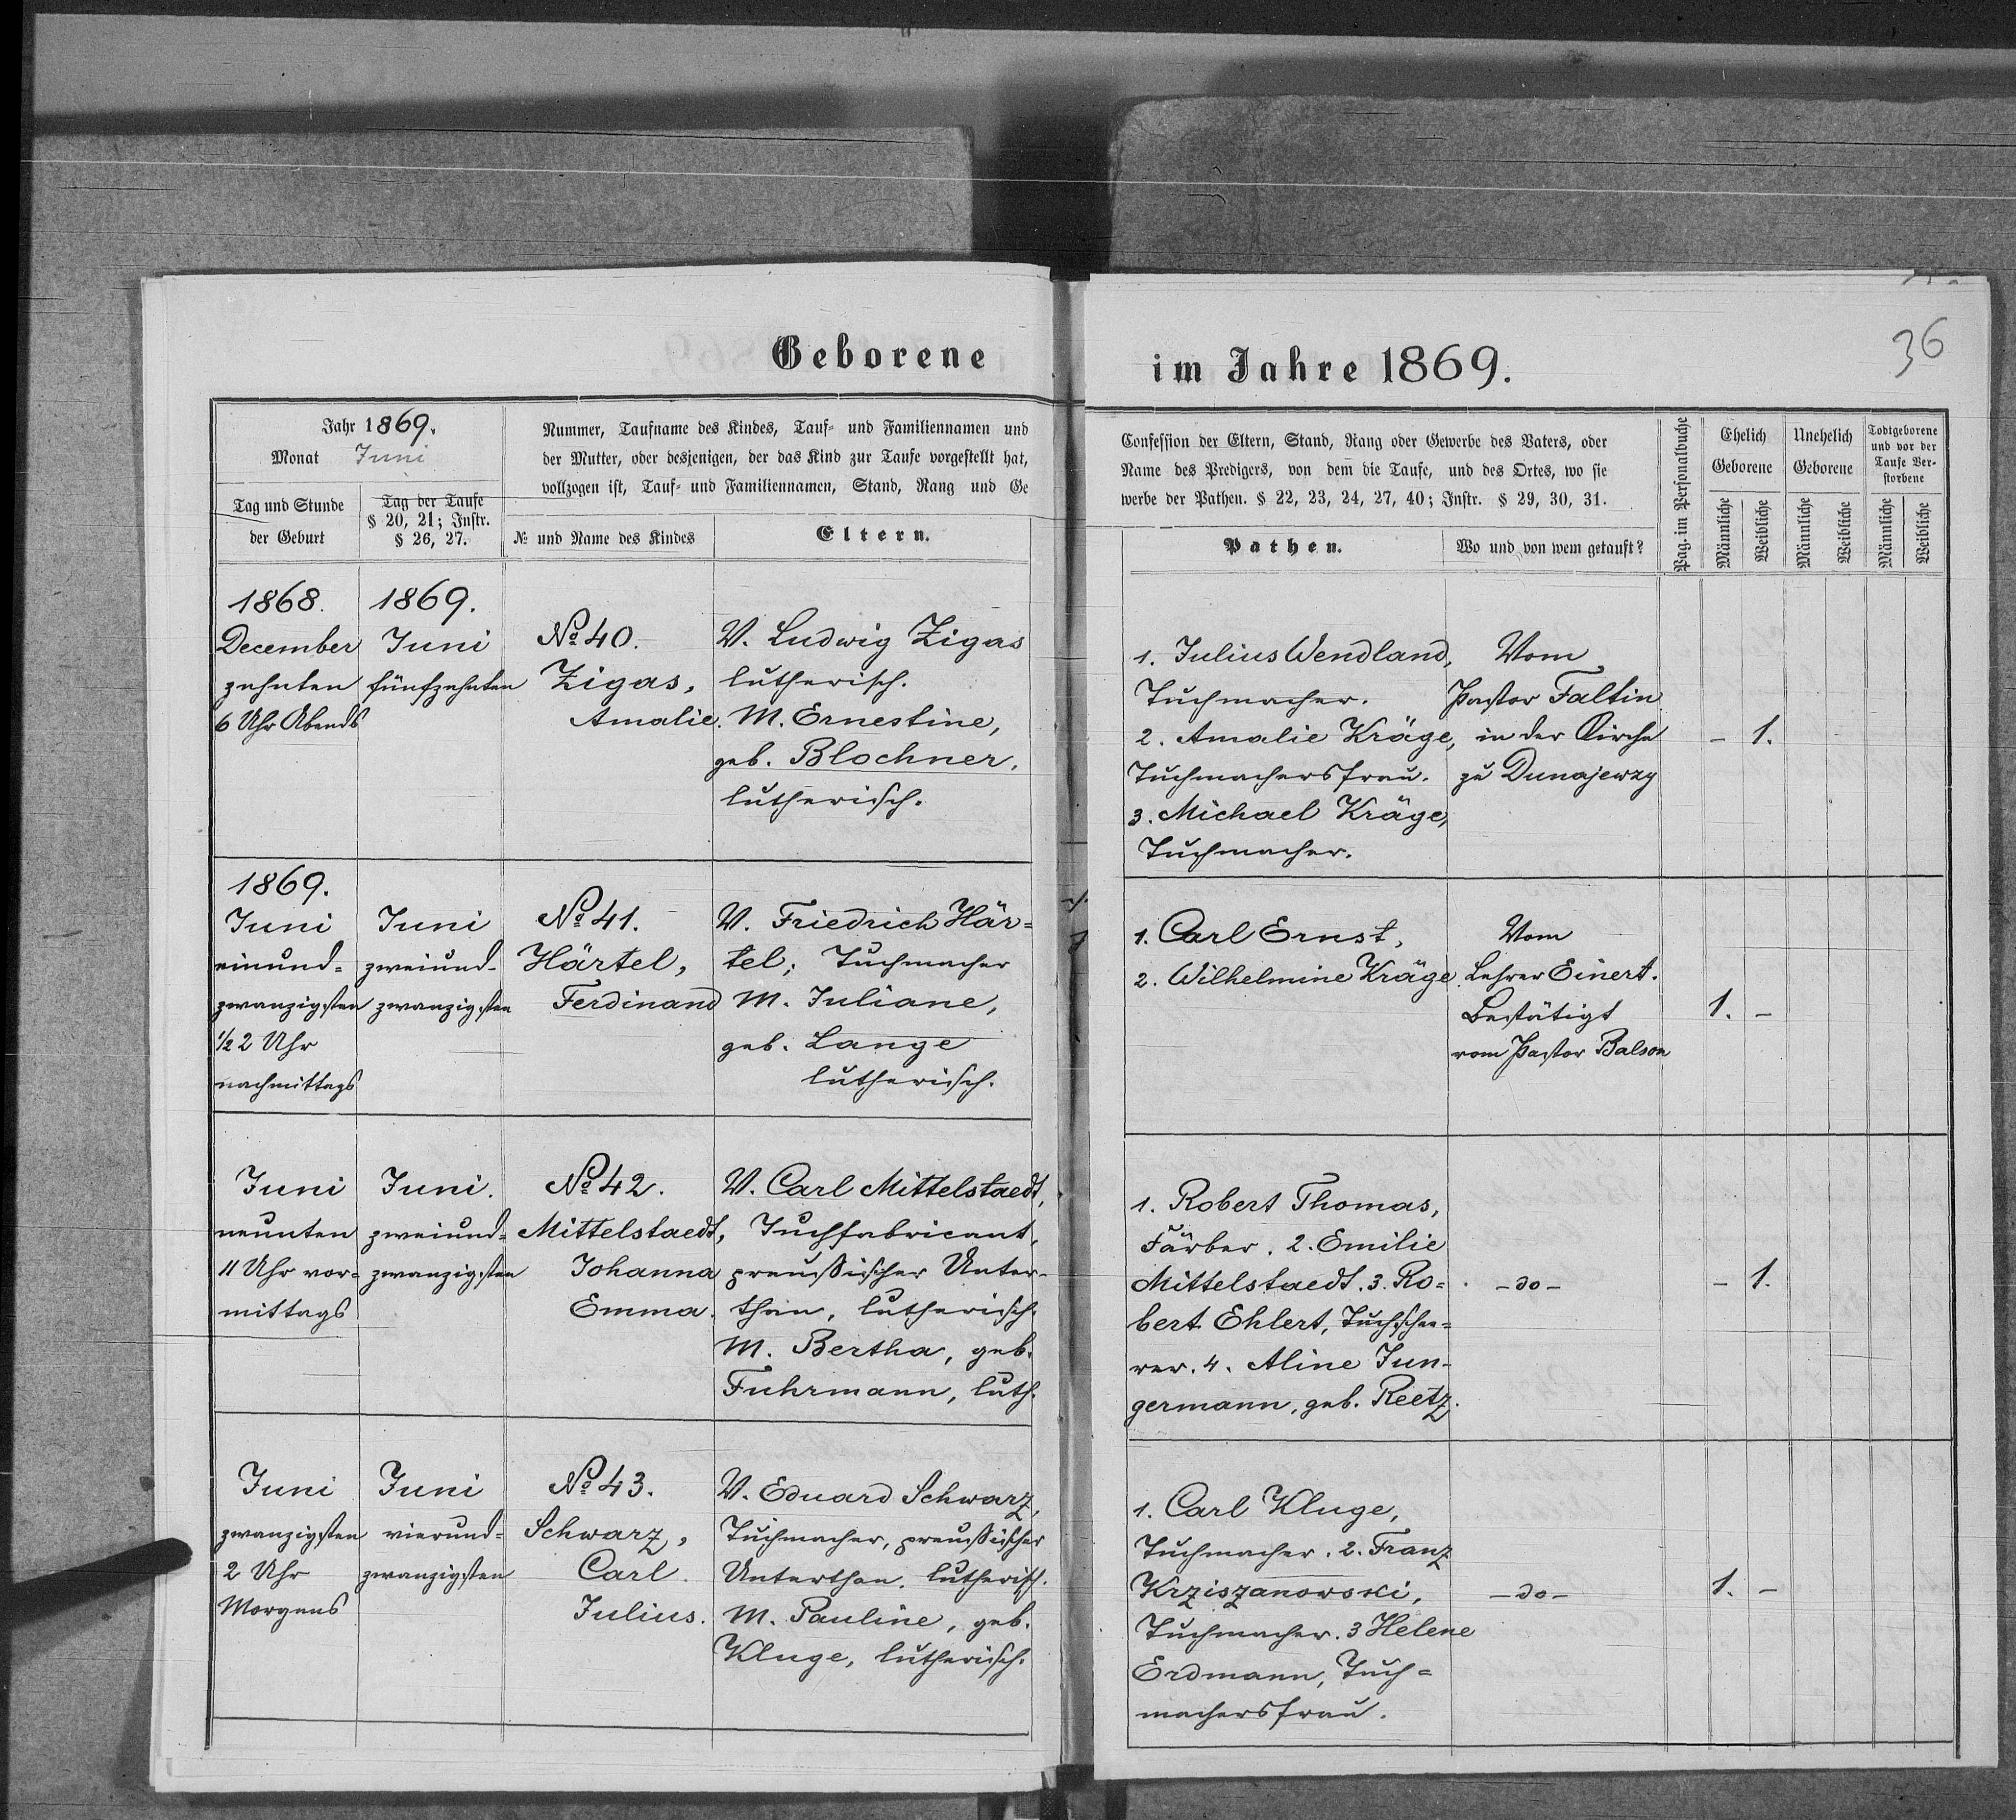 Geborene
im Jahre 1869.
36
Jahr 1869.
Monat Juni
Tag und Stunde
der Geburt
Tag der Taufe
§ 20, 21; Instr.
§ 26, 27.
Nummer, Taufname des Kindes, Tauf- und Familiennamen und
der Mutter, oder desjenigen, der das Kind zur Taufe vorgestellt hat,
vollzogen ist, Tauf- und Familiennamen, Stand, Rang und Ge
№ und Name des Kindes
Eltern.
Confession der Eltern, Stand, Rang oder Gewerbe des Vaters, oder
Name des Predigers, von dem die Taufe, und des Ortes, wo sie
werbe der Pathen. § 22, 23, 24, 27, 40; Instr. § 29, 30, 31.
Pathen.
Wo und von wem getauft?
Pag. im Personalbuche
Ehelich
Geborene
Männliche
Weibliche
Unehelich
Geborene
Männliche
Weibliche
Todtgeborene
und vor der
Taufe Ver-
storbene
Männliche
Weibliche
1868.
December
zehnten
6 Uhr Abends
1869.
Juni
fünfzehnten
№ 40.
Zigas,
Amalie.
V. Ludwig Zigas
lutherisch.
M. Ernestine,
geb. Blochner,
lutherisch.
1. Julius Wendland,
Tuchmacher.
2. Amalie Kräge,
Tuchmachersfrau.
3. Michael Kräge,
Tuchmacher.
Vom
Pastor Faltin
in der Kirche
zu Dunajewzy
– 1.
1869.
Juni
einund-
zwanzigsten
1/2 2 Uhr
nachmittags
Juni
zweiund-
zwanzigsten
№ 41.
Härtel,
Ferdinand
V. Friedrich Här-
tel; Tuchmacher
M. Juliane,
geb. Lange
lutherisch.
1. Carl Ernst,
2. Wilhelmine Kräge.
Vom
Lehrer Einert.
Bestätigt
vom Pastor Balson
1. –
Juni
neunten
11 Uhr vor-
mittags
Juni.
zweiund-
zwanzigsten
№ 42.
Mittelstaedt,
Johanna
Emma.
V. Carl Mittelstaedt,
Tuchfabricant,
preußischer Unter-
than, lutherisch.
M. Bertha, geb.
Fuhrmann, luth.
1. Robert Thomas,
Färber. 2. Emilie
Mittelstaedt. 3. Ro-
bert Ehlert, Tuchschee-
rer. 4. Aline Jun-
germann, geb. Reetz.
– do –
– 1.
Juni
zwanzigsten
2 Uhr
Morgens
Juni
vierund-
zwanzigsten
№ 43.
Schwarz,
Carl
Julius.
V. Eduard Schwarz,
Tuchmacher, preußischer
Unterthan. lutherisch.
M. Pauline, geb.
Kluge, lutherisch.
1. Carl Kluge,
Tuchmacher. 2. Franz
Krziszanowski,
Tuchmacher. 3 Helene
Erdmann, Tuch-
machersfrau.
– do –
1. –